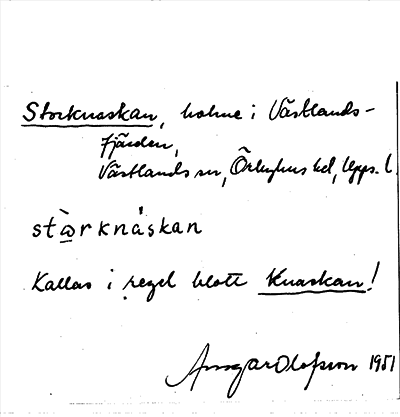 Storknaskan, holme i Västlands-
fjärden,
Västlands sn, Örbyhus hd, Upps. l.
stὼrknåskan
Kallas i regel blott Knaskan!
Ansgar Olofsson 1951